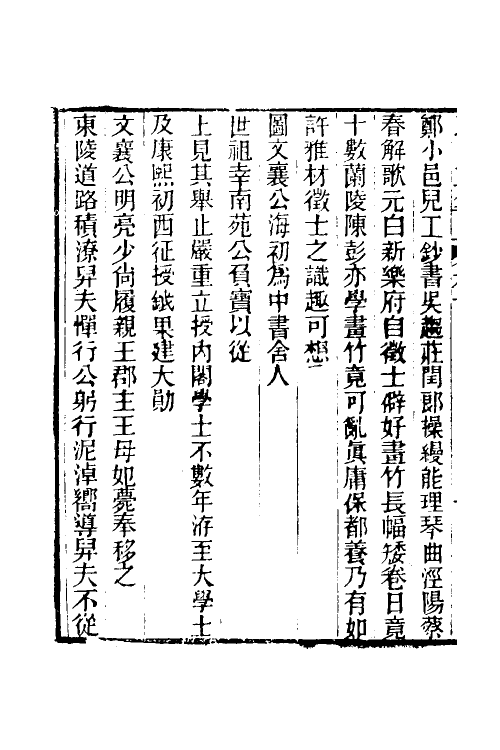 鄭小邑兒工鈔書吳趨莊閏郎操縵能理琴曲涇陽蔡
春解歌元白新樂府自徵士僻好畫竹長幅矮卷日竟
十數蘭陵陳彭亦學畫竹竟可亂眞庸保都養乃有如
許雅材徵士之識趣可想
圖文襄公海初為中書舍人
世祖幸南苑公負寶以從
上見其舉止嚴重立授內閣學士不數年洊至大學士
及康熙初西征授鉞果建大勛
文襄公明亮少尚履親王郡主王母如薨奉移之
東陵道路積潦舁夫憚行公躬行泥淖嚮導舁夫不從